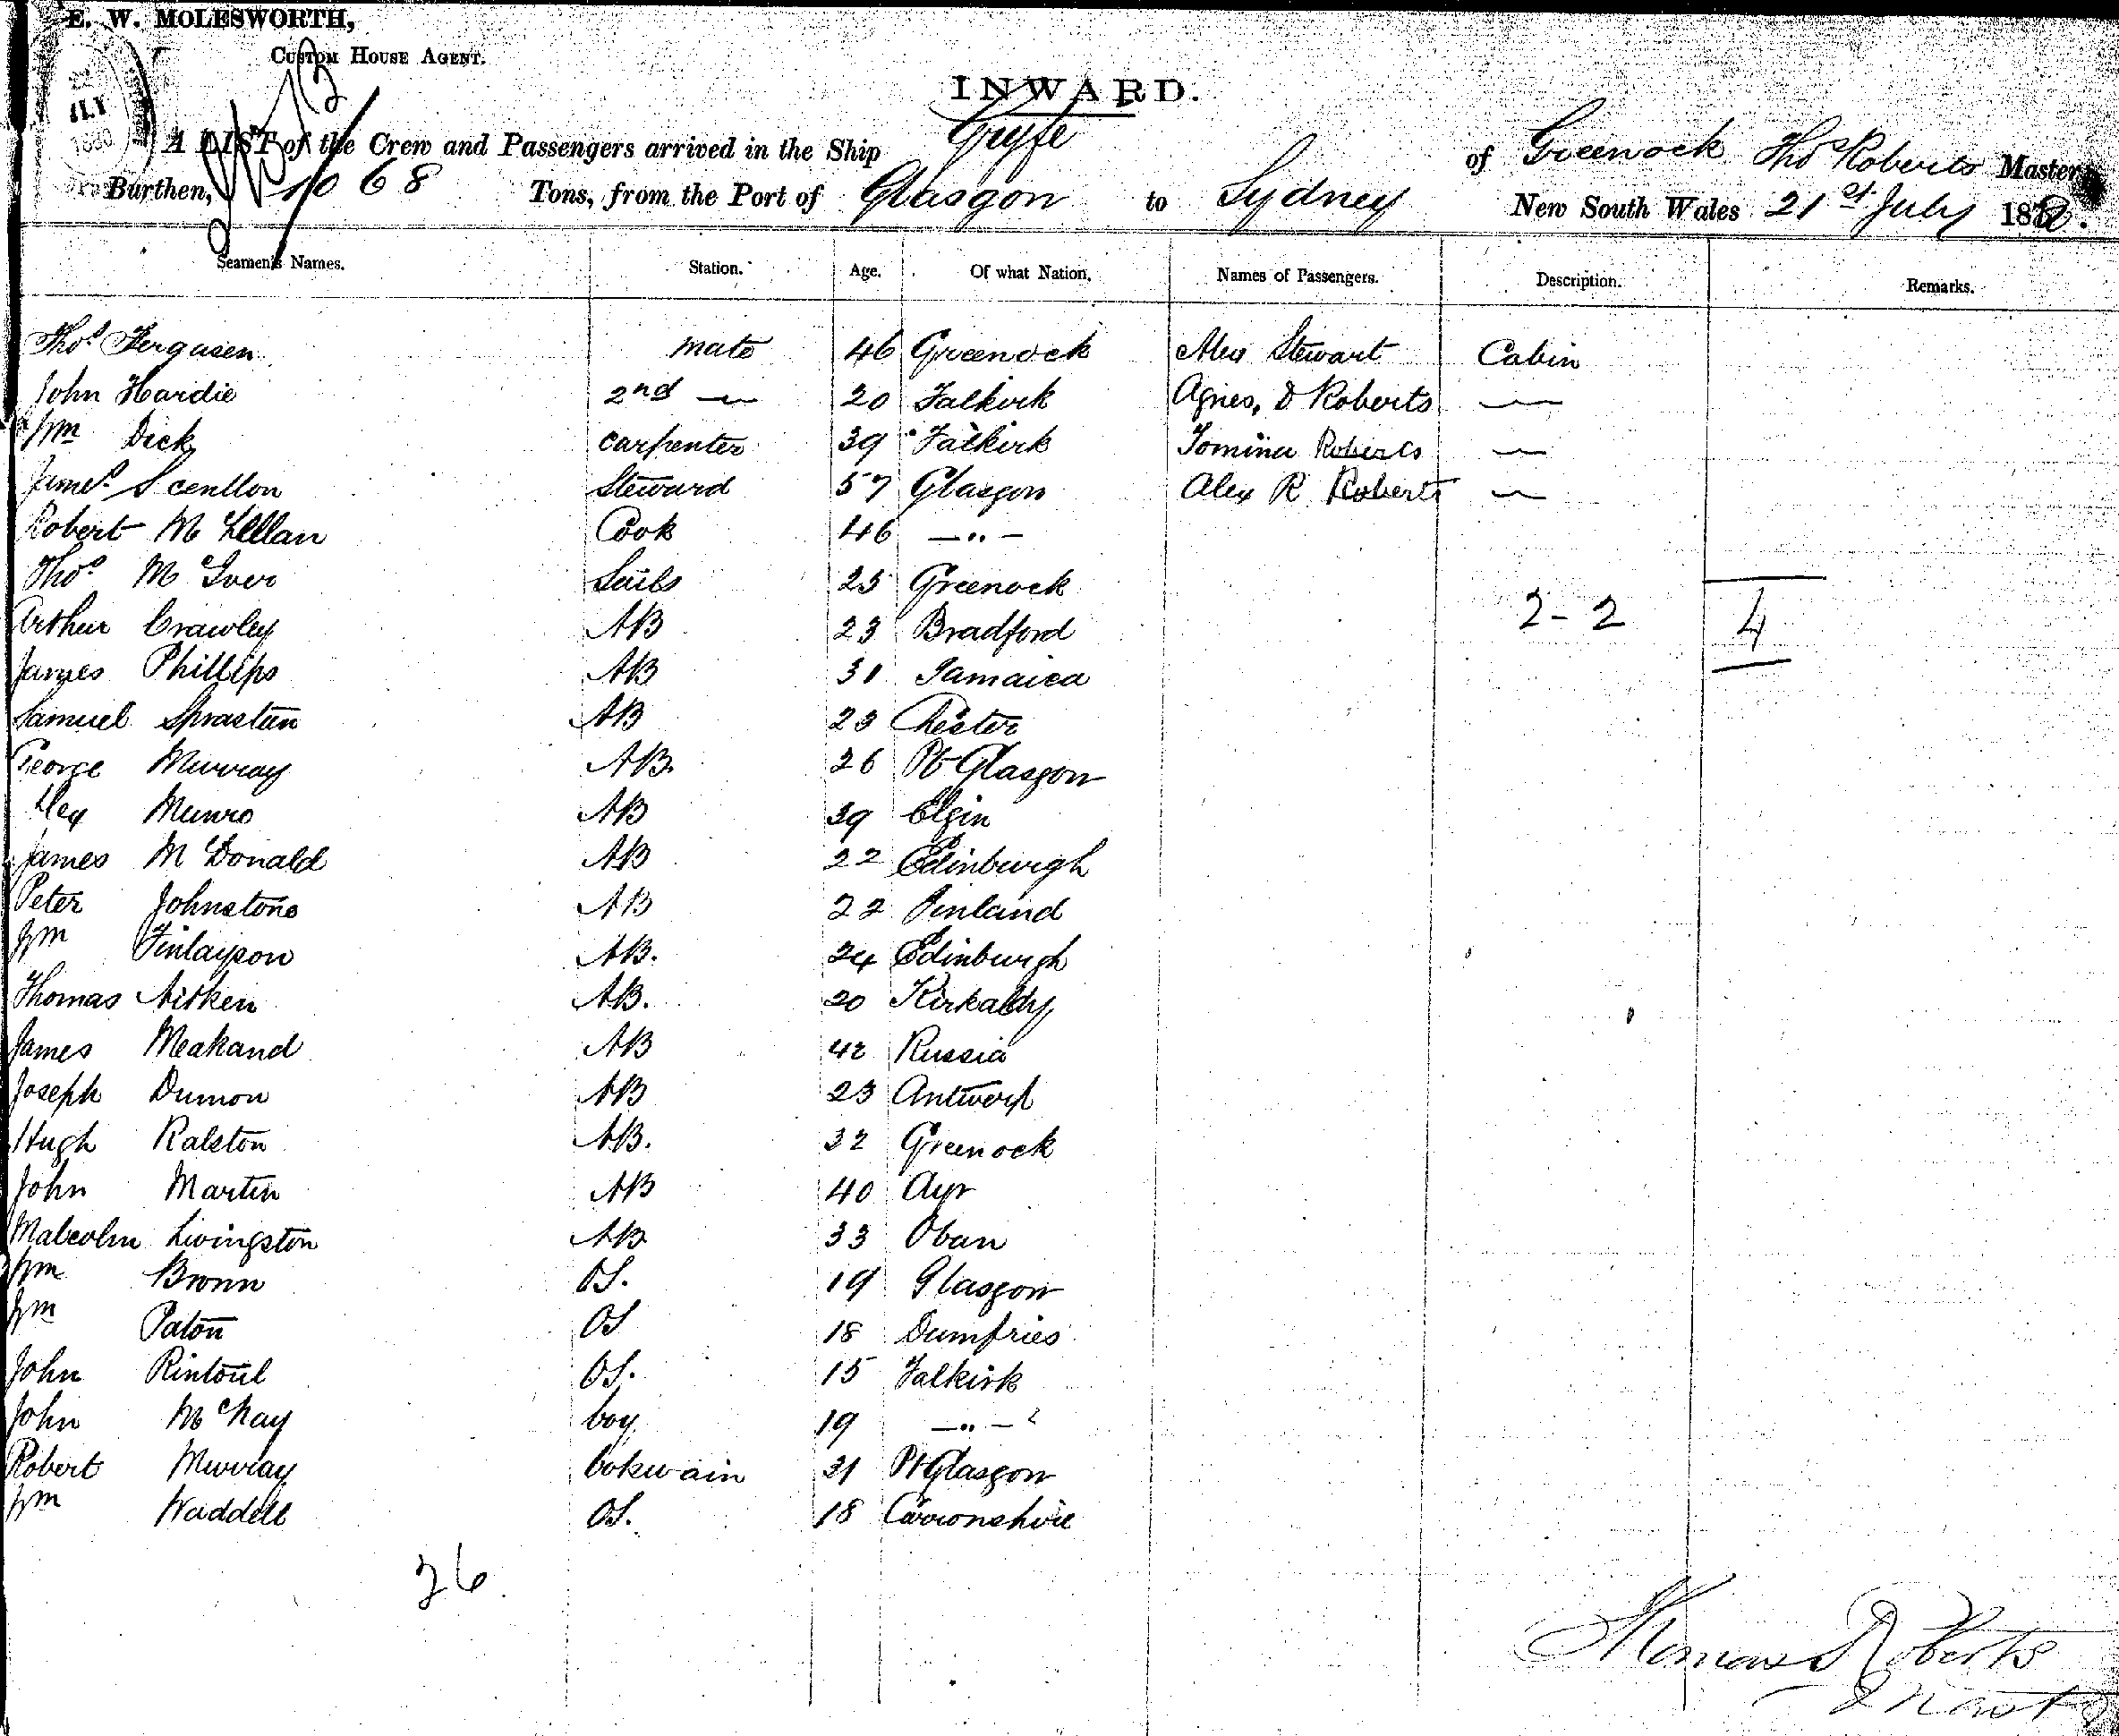 E. W. MOLESWORTH,
CUSTOM HOUSE AGENT.
INWARD.
A LIST of the Crew and Passengers arrived in the Ship Gryfe of Greenock Thos Roberts Master
Burthen, 1068 Tons, from the Port of Glasgow to Sydney New South Wales 21st July 1880.
Seamen's Names. Station. Age. Of what Nation. Names of Passengers. Description. Remarks.
Thos Ferguson mate 46 Greenock Alex Stewart Cabin
John Hardie 2nd — 20 Falkirk Agnes, D Roberts —
Wm Dick carpenter 39 Falkirk Tomina Roberts —
James Scenllon Steward 57 Glasgow Alex R Roberts —
Robert McLellan Cook 46 — " —
Thos McIver Sails 25 Greenock
Arthur Crawley AB 23 Bradford 2-2 4
James Phillips AB 31 Jamaica
Samuel Sprastun AB 23 Chester
George Murray AB. 26 Pt Glasgow
Alex Munro AB 39 Elgin
James McDonald AB 22 Edinburgh
Peter Johnstone AB 22 Finland
Wm Finlayson AB. 24 Edinburgh
Thomas Aitken AB. 20 Kirkaldy
James Meakand AB 42 Russia
Joseph Dumon AB 23 Antwerp
Hugh Ralston AB. 32 Greenock
John Martin AB 40 Ayr
Malcolm Livingston AB 33 Oban
Wm Brown OS. 19 Glasgow
Wm Paton OS 18 Dumfries
John Rintoul OS. 15 Falkirk
John McKay boy 19 — " —
Robert Murray Cokswain 21 Pt Glasgow
Wm Waddell OS. 18 Carronshire
26.
Thomas Roberts